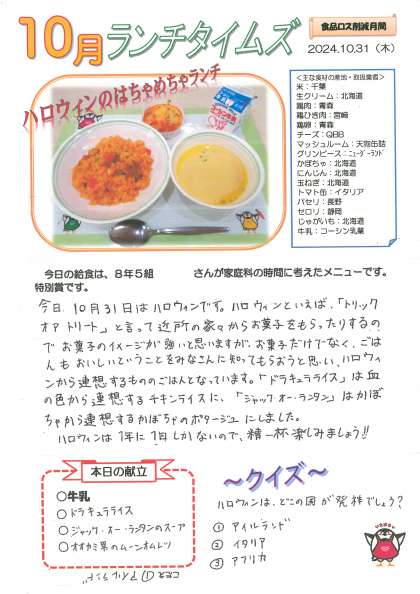 10月ランチタイムズ
食品ロス削減月間
2024.10.31（木）
ハロウィンのはちゃめちゃランチ
＜主な食材の産地・取扱業者＞
米：千葉
生クリーム：北海道
鶏肉：青森
鶏ひき肉：宮崎
鶏卵：青森
チーズ：QBB
マッシュルーム：天狗缶詰
グリンピース：ニュージーランド
かぼちゃ：北海道
にんじん：北海道
玉ねぎ：北海道
トマト缶：イタリア
パセリ：長野
セロリ：静岡
じゃがいも：北海道
牛乳：コーシン乳業
今日の給食は、８年５組　　　さんが家庭科の時間に考えたメニューです。
特別賞です。
今日、10月31日はハロウィンです。ハロウィンといえば、「トリック
オア トリート」と言って近所の家々からお菓子をもらったりするの
で お菓子のイメージが強いと思いますが、お菓子だけでなく、ごは
んも おいしいということをみなさんに知ってもらおうと思い、ハロウィ
ンから連想するもののごはんとなっています。「ドラキュラライス」は血
の色から連想する チキンライスに、「ジャック・オー・ランタン」はかぼ
ちゃから連想するかぼちゃのポタージュにしました。
ハロウィンは1年に1日しかないので、精一杯楽しみましょう!!
本日の献立
○牛乳
○ドラキュラライス
○ジャック・オー・ランタンのスープ
○オオカミ男のムーンオムレツ
～クイズ～
ハロウィンは、どこの国が発祥でしょう？
① アイルランド
② イタリア
③ アフリカ
こたえ ① アイルランド